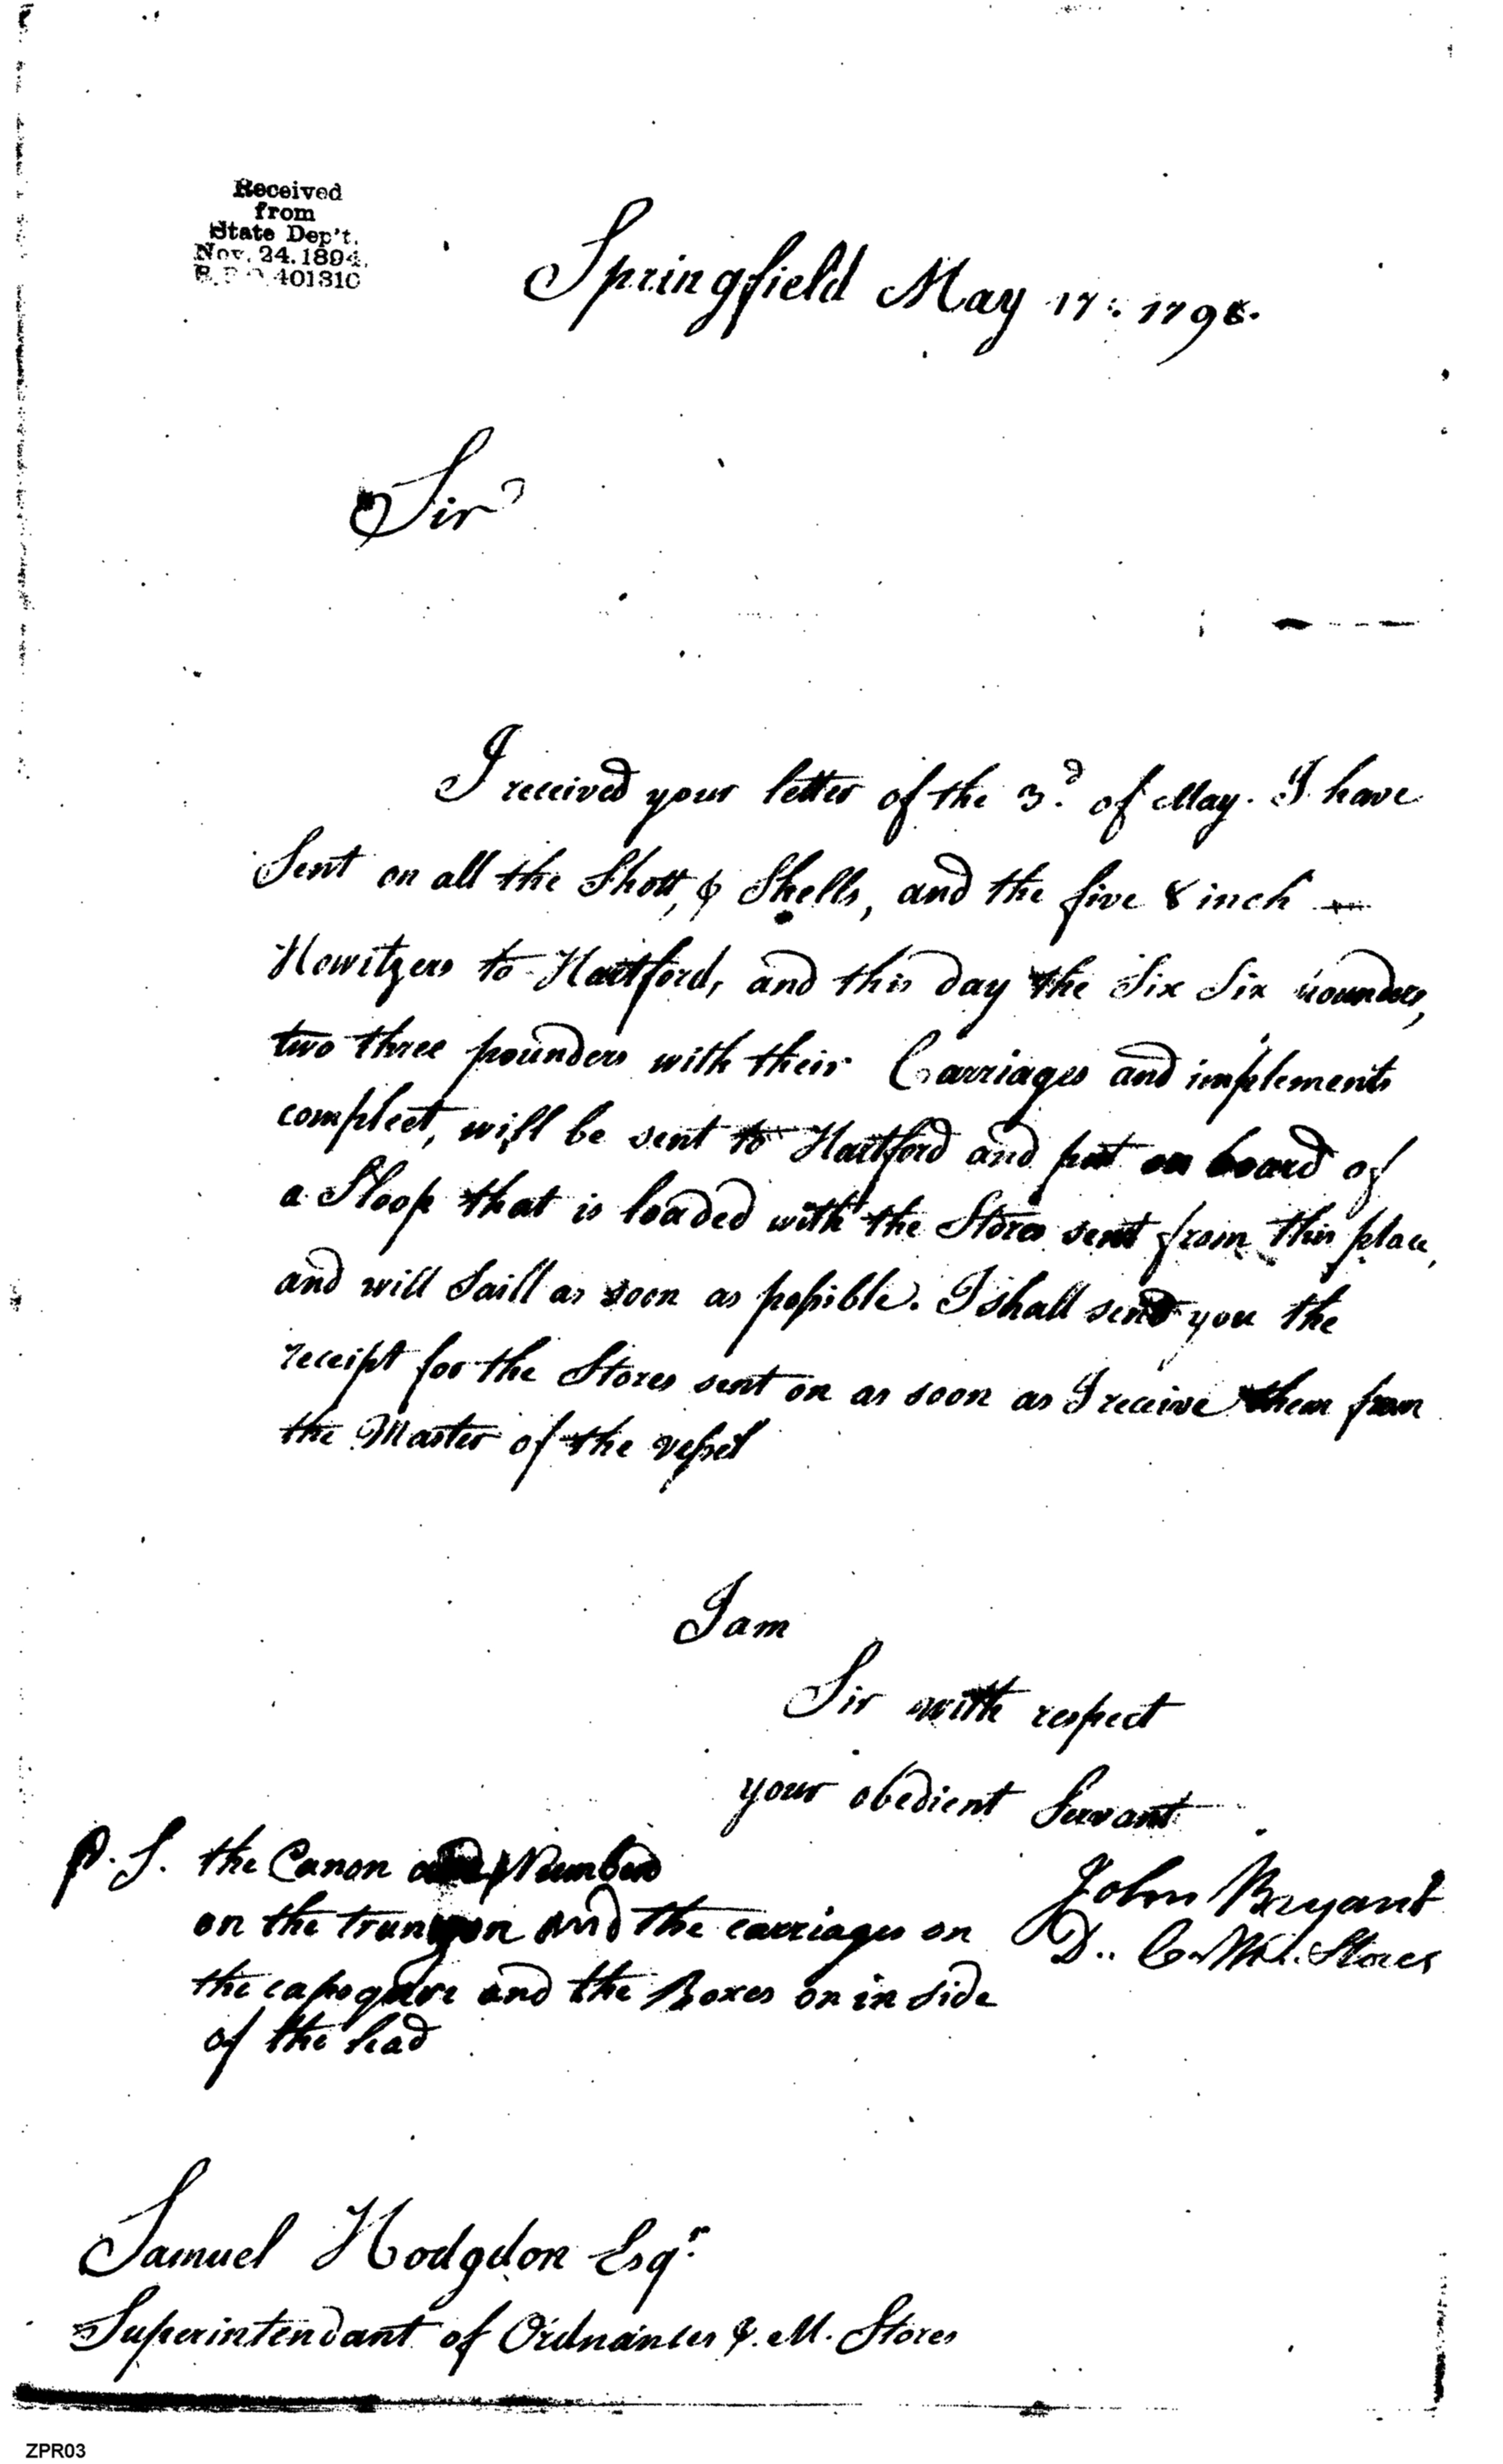 Received
from
State Dep't.
Nov. 24. 1894.
401310
Springfield May 17: 179
Sir
I received your letter of the 3.d of May. I have
Sent on all the Shott, & Shells, and the five 8 inch
Howitzers to Hartford, and this day the Six Six pounders,
two three pounders with their Carriages and implements
compleet, will be sent to Hartford and put on board of
a Sloop that is loaded with the Stores sent from this place,
and will Saill as soon as possible. I shall send you the
receipt for the Stores sent on as soon as I receive them from
the Master of the vessel
I am
Sir with respect
your obedient Servant
P. S. the Canon are Numberd
on the trunyon and the carriages on
John Bryant
D.. C. M. Stores
the and the Boxes on in side
of the head
Samuel Hodgdon Esqr.
Superintendant of Ordnances &. M. Stores
ZPR03